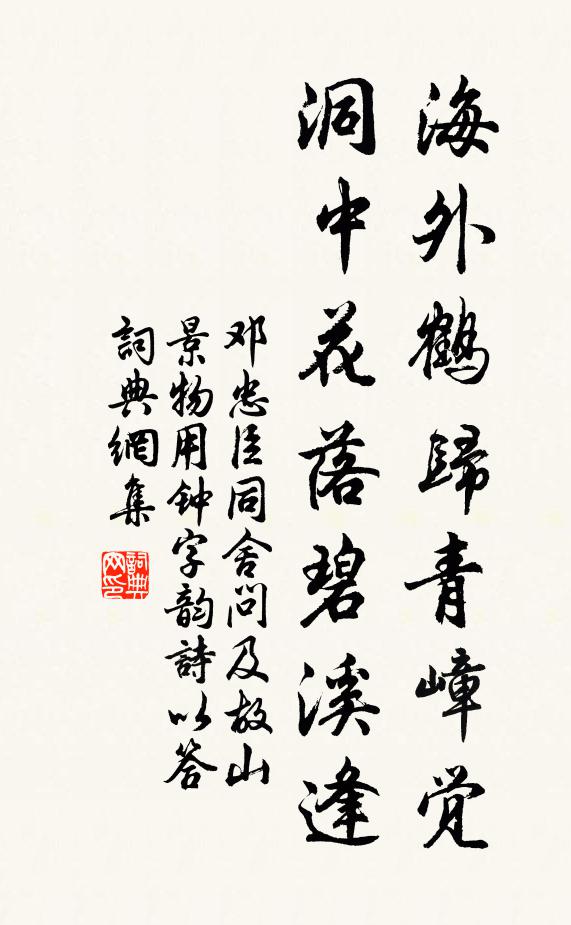 海外鹤歸青嶂觉
洞中花落碧溪逢
邓忠臣同舍问及故山
景物用钟字韵詩以答
詞典網集
詞典網印